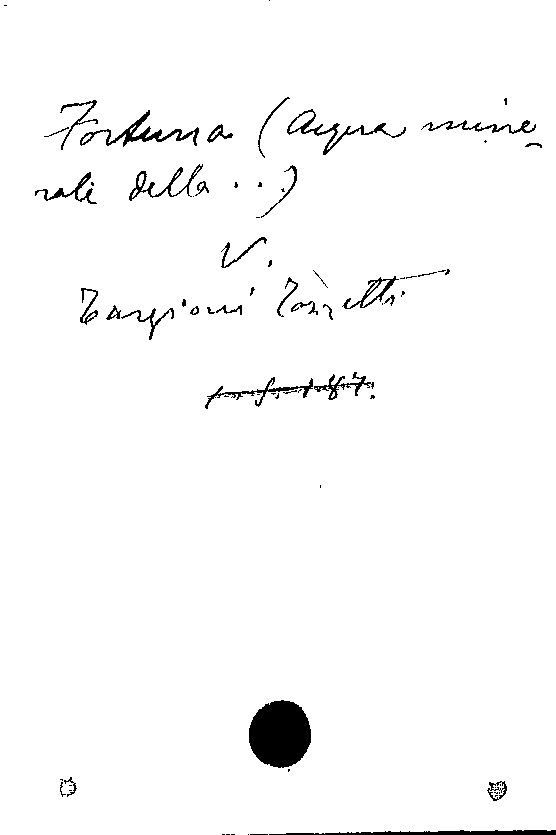 Fortuna (Acqua mine-
rali della ...)
V.
Targioni Tozzetti